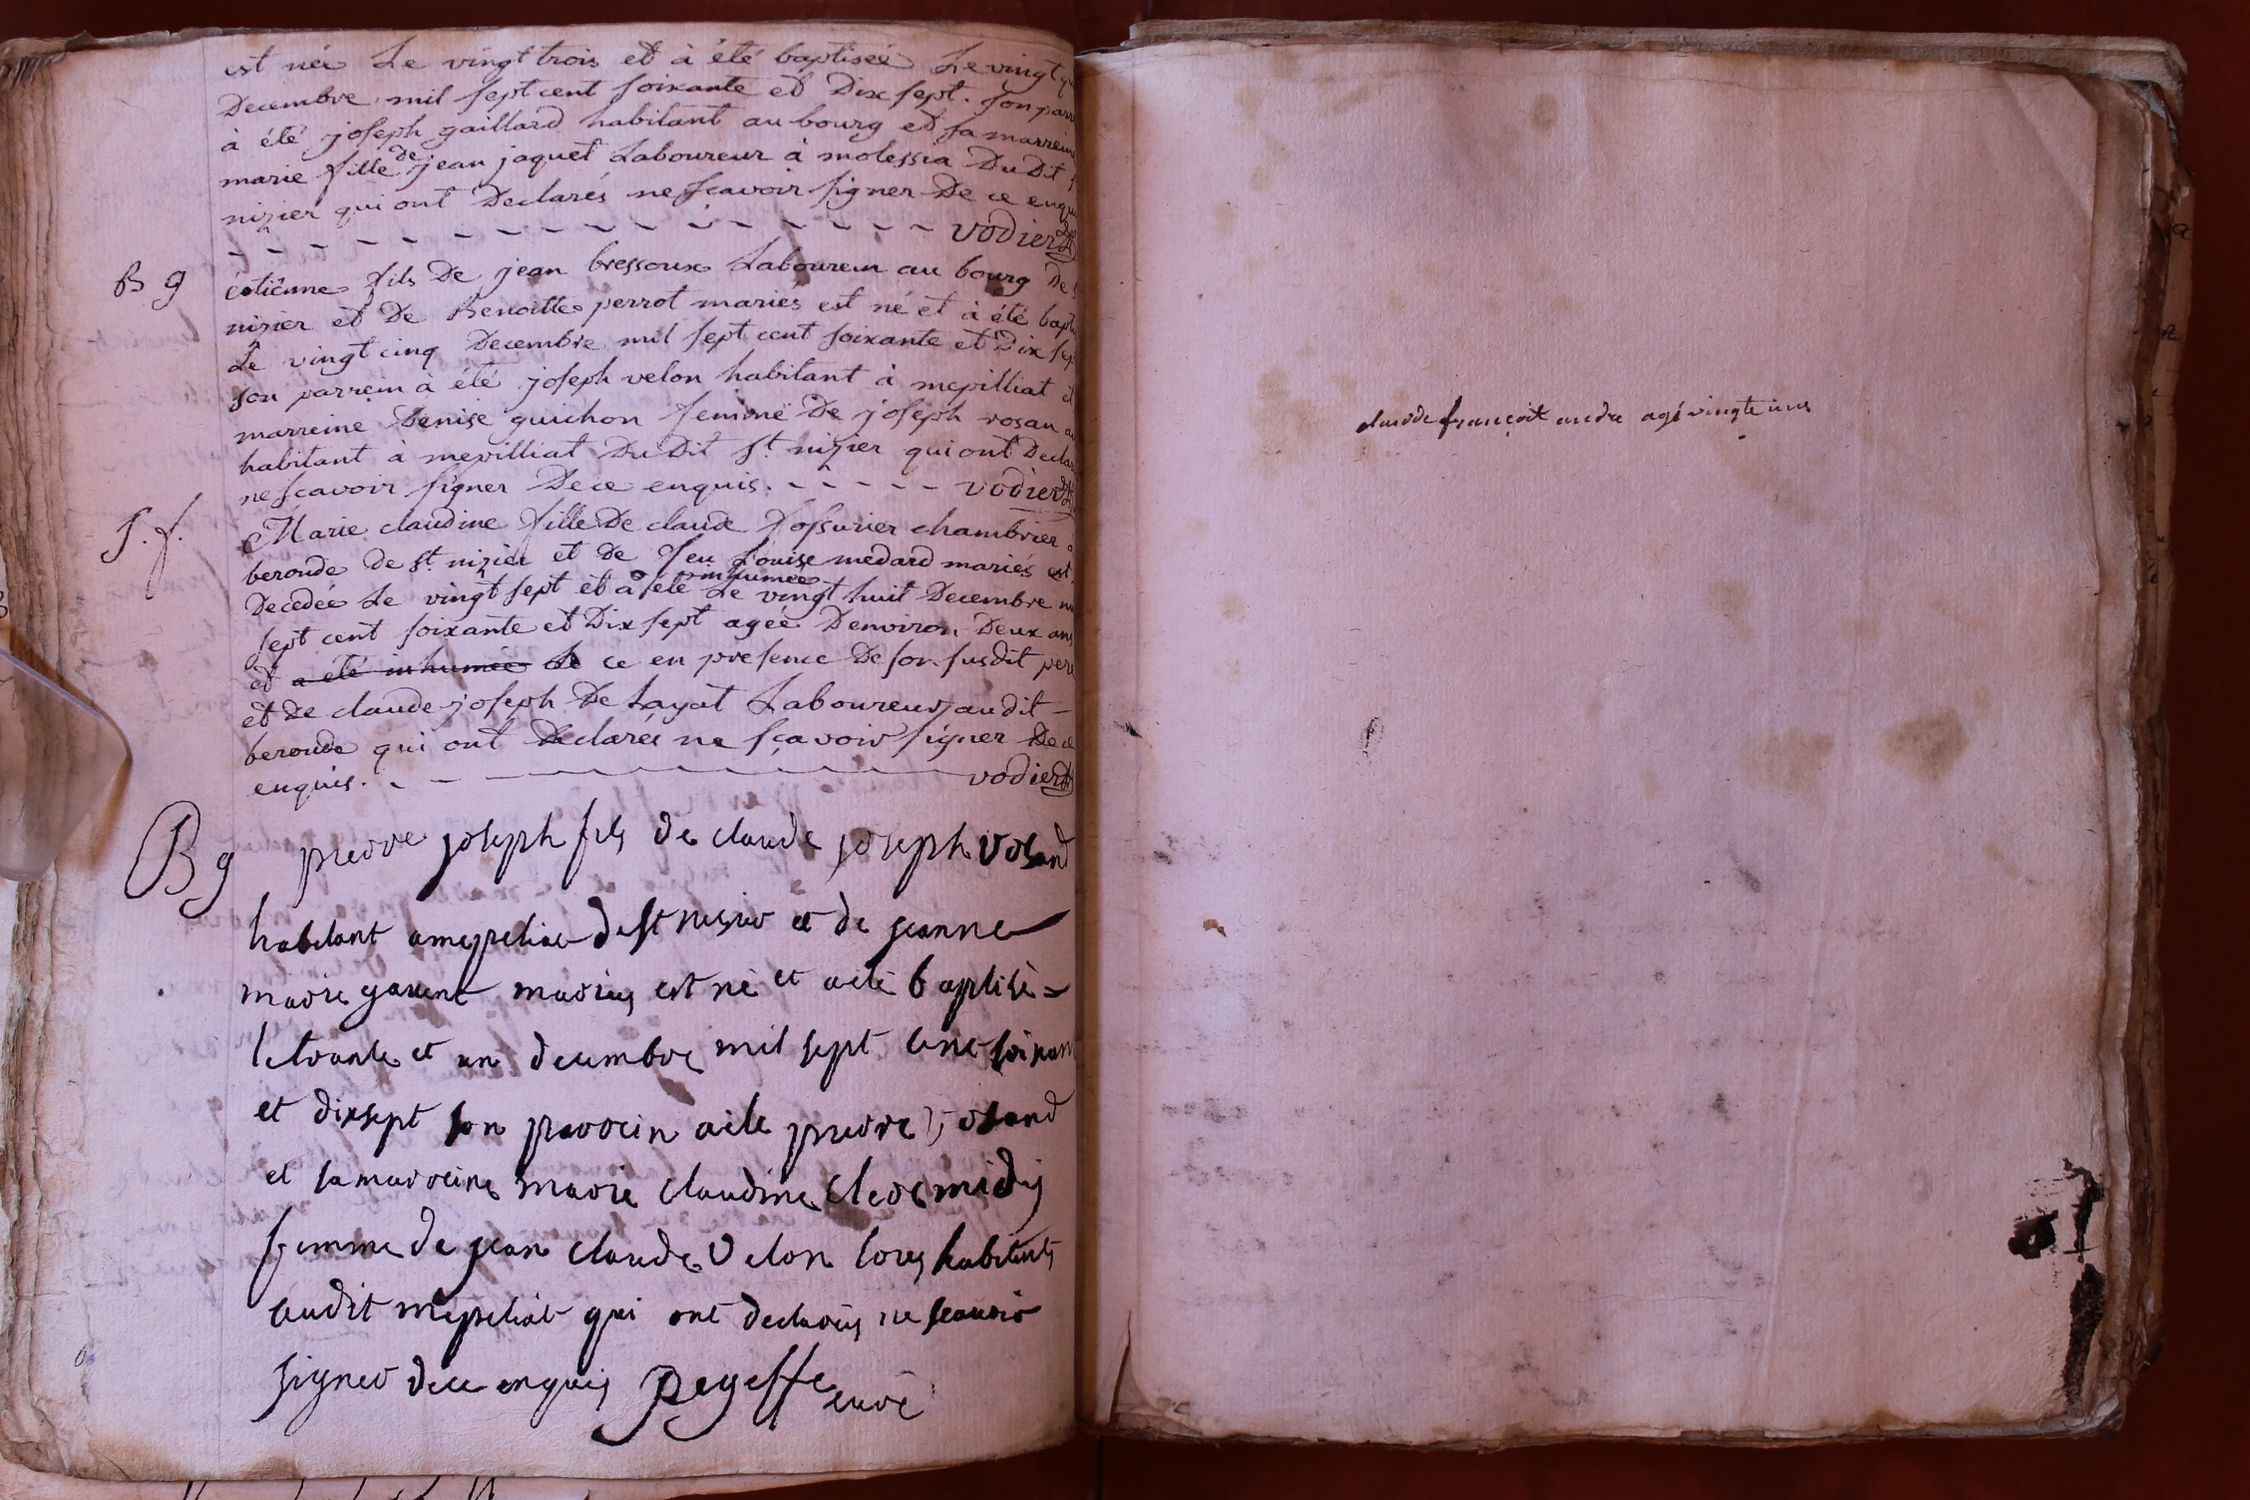 est née Le vingt trois et à été baptisée Le vingt
Decembre mil sept cent soixante et Dix sept. son parr
à été joseph gaillard habitant au bourg et sa marreine
marie fille de jean jaquet Laboureur à molessia Du Dit
nizier qui ont Declarés ne sçavoir signer De ce enqu
vodier
B g
étiênne fils De jean bressoux Laboureur au bourg De
nizier et De Benoitte perrot mariés est né et à été bapt
Le vingt cinq Decembre mil sept cent soixante et Dix sep
son parrein à été joseph velon habitant à mepilliat et
marreine Denise guichon femme De joseph rosan
habitant à mepilliat Du Dit St. nizier qui ont Decla
ne sçavoir signer De ce enquis. vodier
S. f.
Marie claudine fille De claude fossurier chambrier
beronde de St. nizier et de feu Louise medard mariés est
Decedée Le vingt sept et à été inhumée Le vingt huit Decembre m
sept cent soixante et Dix sept agée Denviron Deux ans
et a été inhumée Le ce en presence De son susdit pere
et De claude joseph De Layat Laboureur audit
beronde qui ont Declarés ne sçavoir signer De ce
enquis. vodier
B g
pierre joseph fils de claude joseph vosand
habitant a mepeliat d St nisier et de jeanne
marie gavent maries est né et a eté baptisé
le trante et un decembre mil sept cent soixan
et dixsept son parrein a ete pierre vosand
et sa marreine marie claudine clere midy
femme de jean claude velon tous habitants
audit mepeliat qui ont declares ne scauoir
signer de ce enquis peysse curé
claude françoit andre agé vingte